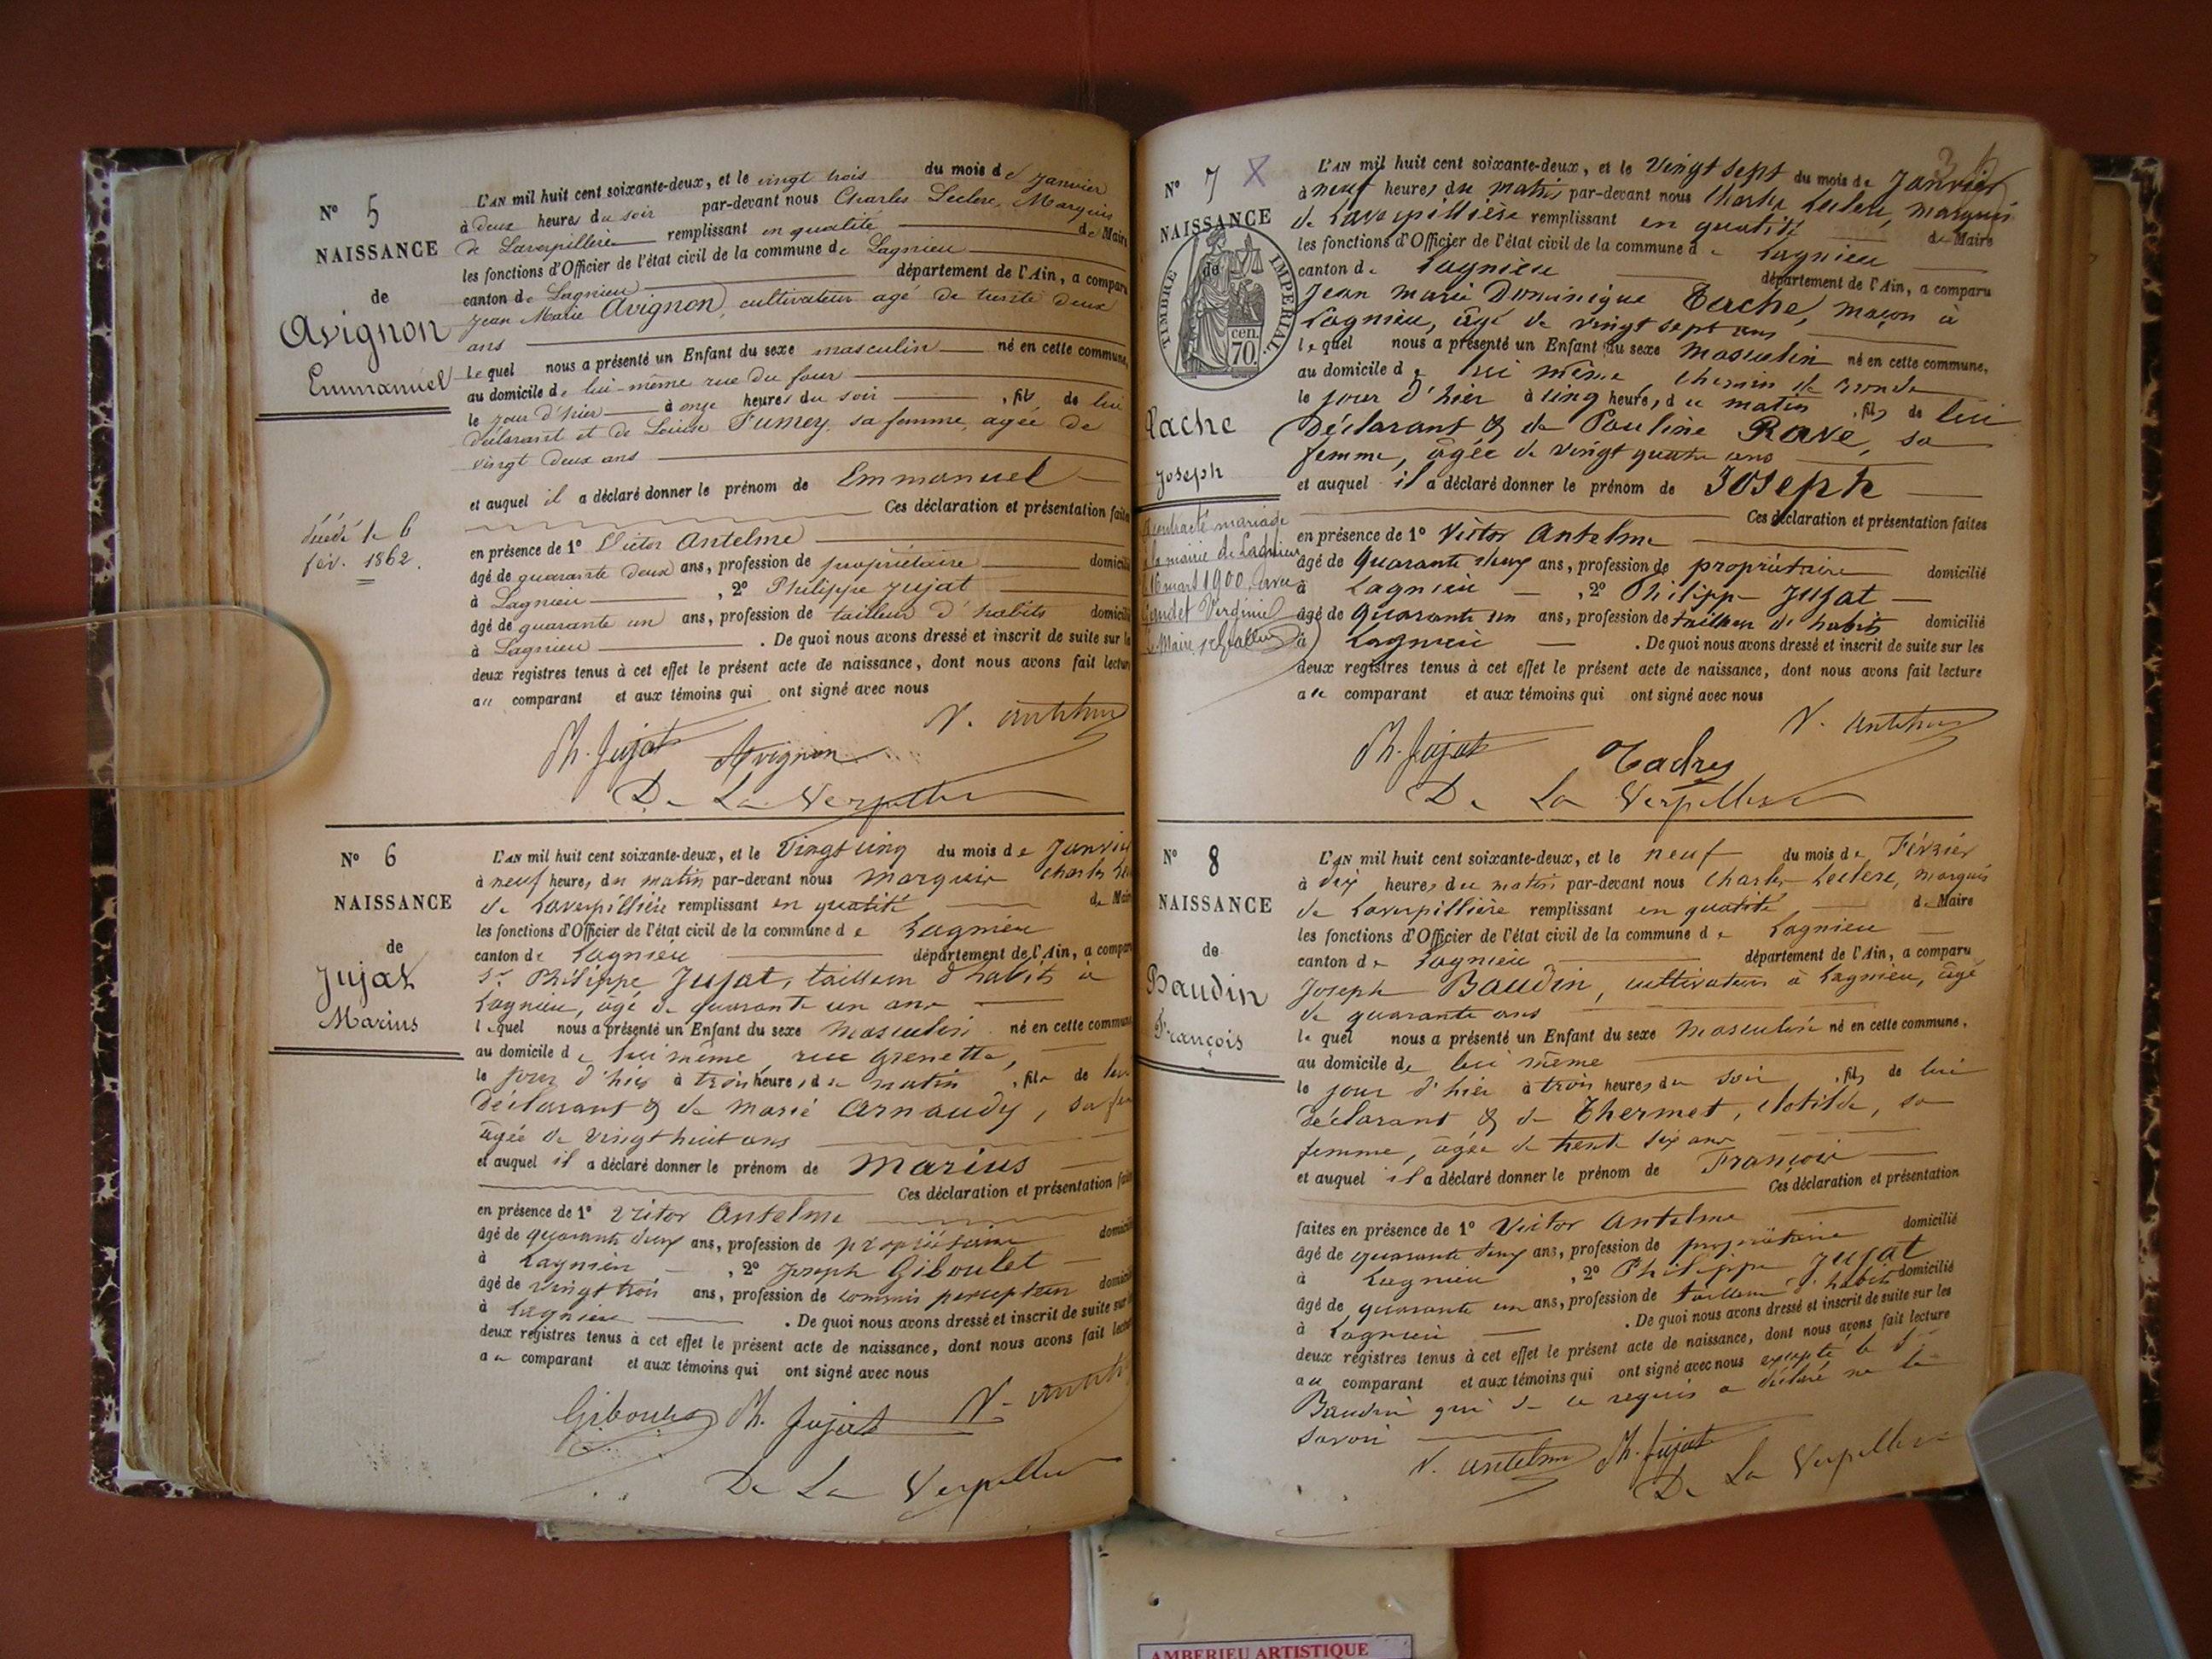 N° 5
NAISSANCE
de
Avignon
Emmanuel
décédé le 6
fév. 1862.
L'AN mil huit cent soixante-deux, et le vingt trois du mois de Janvier
à deux heures du soir par-devant nous Charles Leclerc, Marquis
de Laverpillière remplissant en qualité de Maire
les fonctions d'Officier de l'état civil de la commune de Lagnieu
canton de Lagnieu département de l'Ain, a comparu
Jean Marie Avignon, cultivateur agé de trente deux
ans
lequel nous a présenté un Enfant du sexe masculin né en cette commune,
au domicile de lui-même rue du four
le jour d'hier à onze heures du soir , fils de lui
déclarant et de Louise Fumey sa femme, agée de
vingt deux ans
et auquel il a déclaré donner le prénom de Emmanuel
Ces déclaration et présentation faites
en présence de 1° Victor Antelme
âgé de quarante deux ans, profession de propriétaire domicilié
à Lagnieu , 2° Philippe Jujat
âgé de quarante un ans, profession de tailleur d'habits domicilié
à Lagnieu . De quoi nous avons dressé et inscrit de suite sur les
deux registres tenus à cet effet le présent acte de naissance, dont nous avons fait lecture
au comparant et aux témoins qui ont signé avec nous
Ph. Jujat Avignon V. Antelme
De La Verpillière
N° 6
NAISSANCE
de
Jujat
Marius
L'AN mil huit cent soixante-deux, et le Vingt cinq du mois de Janvier
à neuf heures du matin par-devant nous Marquis Charles
de Laverpillière remplissant en qualité de Maire
les fonctions d'Officier de l'état civil de la commune de Lagnieu
canton de Lagnieu département de l'Ain, a comparu
Sr Philippe Jujat, tailleur d'habits à
Lagnieu, âgé de quarante un ans
lequel nous a présenté un Enfant du sexe Masculin né en cette commune
au domicile de lui même rue Grenette,
le jour d'hier à trois heures du matin , fils de lui
déclarant & de Marie Arnaudy, sa
âgée de vingt huit ans
et auquel il a déclaré donner le prénom de Marius
Ces déclaration et présentation faites
en présence de 1° Victor Antelme
âgé de quarante deux ans, profession de propriétaire domicilié
à Lagnieu , 2° Joseph Giboulet
âgé de vingt trois ans, profession de commis percepteur domicilié
à Lagnieu . De quoi nous avons dressé et inscrit de suite sur les
deux registres tenus à cet effet le présent acte de naissance, dont nous avons fait lecture
au comparant et aux témoins qui ont signé avec nous
Giboulet Ph. Jujat V. Antelme
De La Verpillière
N° 7 X
NAISSANCE
de
TIMBRE IMPÉRIAL.
cen. 70
Tache
Joseph
a contracté mariage
à la mairie de Lagnieu
mars 1900, avec
Virginie
Le Maire,
L'AN mil huit cent soixante-deux, et le Vingt sept du mois de Janvier
à neuf heures du matin par-devant nous Charles Leclerc, marquis
de Laverpillière remplissant en qualité de Maire
les fonctions d'Officier de l'état civil de la commune de Lagnieu
canton de Lagnieu département de l'Ain, a comparu
Jean Marie Dominique Tache, maçon à
Lagnieu, âgé de vingt sept ans
lequel nous a présenté un Enfant du sexe Masculin né en cette commune,
au domicile de lui même, chemin de ronde
le jour d'hier à cinq heures du matin , fils de lui
déclarant & de Pauline Rave, sa
femme, âgée de vingt quatre ans
et auquel il a déclaré donner le prénom de Joseph
Ces déclaration et présentation faites
en présence de 1° Victor Antelme
âgé de Quarante deux ans, profession de propriétaire domicilié
à Lagnieu , 2° Philippe Jujat
âgé de Quarante un ans, profession de tailleur d'habits domicilié
à Lagnieu . De quoi nous avons dressé et inscrit de suite sur les
deux registres tenus à cet effet le présent acte de naissance, dont nous avons fait lecture
au comparant et aux témoins qui ont signé avec nous
Ph. Jujat V. Antelme
De La Verpillière
N° 8
NAISSANCE
de
Baudin
François
L'AN mil huit cent soixante-deux, et le neuf du mois de Février
à dix heures du matin par-devant nous Charles Leclerc, marquis
de Laverpillière remplissant en qualité de Maire
les fonctions d'Officier de l'état civil de la commune de Lagnieu
canton de Lagnieu département de l'Ain, a comparu
Joseph Baudin, cultivateur à Lagnieu, âgé
de quarante ans
lequel nous a présenté un Enfant du sexe Masculin né en cette commune,
au domicile de lui même
le jour d'hier à trois heures du soir , fils de lui
déclarant & de Thermet, Clotilde, sa
femme, âgée de trente six ans
et auquel il a déclaré donner le prénom de François
Ces déclaration et présentation
faites en présence de 1° Victor Antelme
âgé de quarante deux ans, profession de propriétaire domicilié
à Lagnieu , 2° Philippe Jujat
âgé de quarante un ans, profession de tailleur d'habits domicilié
à Lagnieu . De quoi nous avons dressé et inscrit de suite sur les
deux registres tenus à cet effet le présent acte de naissance, dont nous avons fait lecture
au comparant et aux témoins qui ont signé avec nous excepté le Sr
Baudin qui de ce requis a déclaré ne le
savoir
V. Antelme Ph. Jujat
De La Verpillière
AMBERIEU ARTISTIQUE